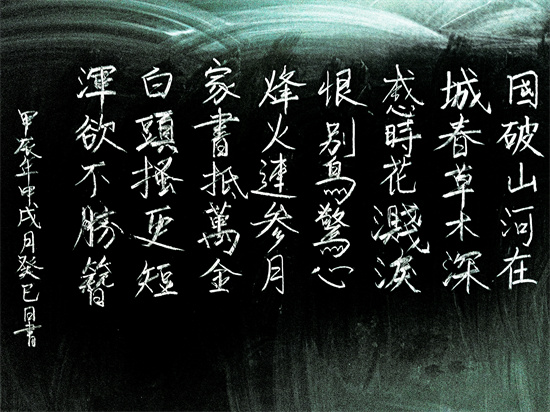 国破山河在
城春草木深
感時花濺淚
恨别鳥驚心
烽火連参月
家書抵萬金
白頭搔更短
渾欲不勝簪
甲辰年甲戌月癸巳日書